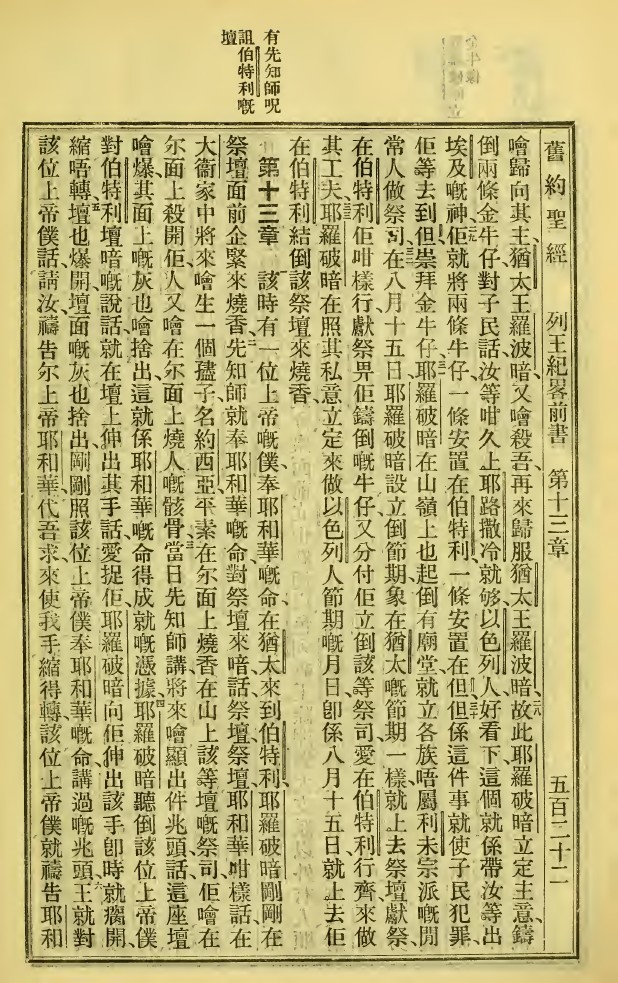 有先知師呪
詛伯特利嘅
壇
舊約聖經 列王紀畧前書 第十三章 五百二十二
噲歸向其主、猶太王羅波暗、又噲殺吾、再來歸服猶太王羅波暗、二八故此耶羅破暗立定主意、鑄
倒兩條金牛仔、對子民話、汝等咁久上耶路撒冷就够、以色列人好看下、這個就係帶汝等出
埃及嘅神、二九佢就將兩條牛仔、一條安置在伯特利、一條安置在但、三十但係這件事就使子民犯罪、
佢等去到但、崇拜金牛仔、三一耶羅破暗在山嶺上也起倒有廟堂、就立各族唔屬利未宗派嘅閒
常人做祭司、三二在八月十五日、耶羅破暗設立倒節期、象在猶太嘅節期一樣、就上去祭壇獻祭、
在伯特利佢咁樣行、獻祭畀佢鑄倒嘅牛仔、又分付佢立倒該等祭司、愛在伯特利行齊來做
其工夫、三三耶羅破暗在照其私意立定來做以色列人節期嘅月日、卽係八月十五日、就上去佢
在伯特利結倒該祭壇來燒香、
第十三章 該時有一位上帝嘅僕、奉耶和華嘅命、在猶太來到伯特利、耶羅破暗剛剛在
祭壇面前企緊來燒香、二先知師就奉耶和華嘅命、對祭壇來喑、話、祭壇祭壇、耶和華咁樣話、在
大衞家中將來噲生一個孻子、名約西亞、平素在尔面上燒香在山上該等壇嘅祭司、佢噲在
尔面上殺開佢人、又噲在尔面上燒人嘅骸骨、三當日先知師講將來噲顯出件兆頭、話、這座壇
噲爆、其面上嘅灰也噲捨出、這就係耶和華嘅命得成就嘅憑據、四耶羅破暗聽倒該位上帝僕
對伯特利壇喑嘅說話、就在壇上伸出其手、話、愛捉佢、耶羅破暗向佢伸出該手、卽時就癱開、
縮唔轉、五壇也爆開、壇面嘅灰也捨出、剛剛照該位上帝僕奉耶和華嘅命講過嘅兆頭、六王就對
該位上帝僕話、請汝禱告尔上帝耶和華、代吾求、來使我手縮得轉、該位上帝僕就禱告耶和